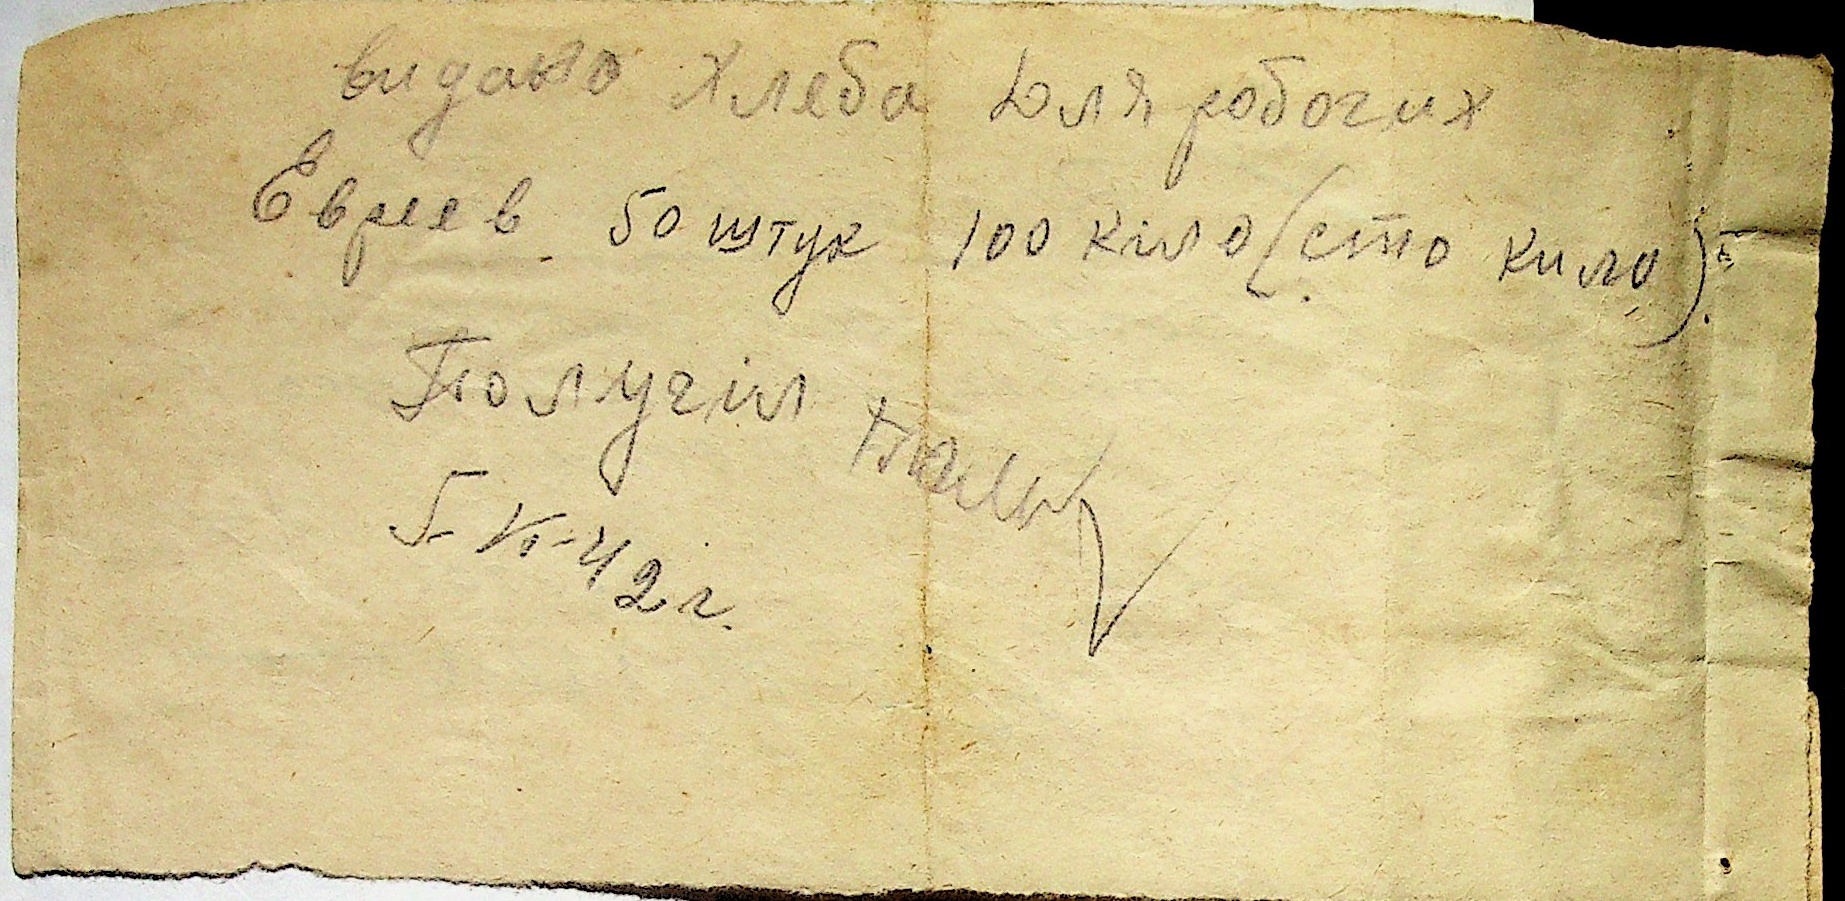 видано хлеба Для робочих
Евреев 50 штук 100 кіло (сто кило).
Получіл
5-VI-42 г.